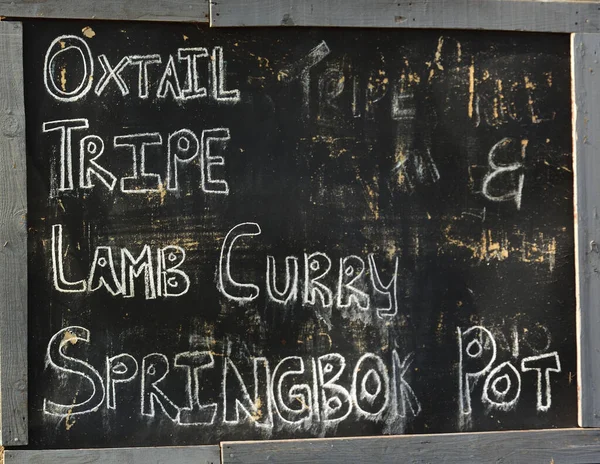 OXTAIL TRIPE
TRIPE &
LAMB CURRY
SPRINGBOK POT